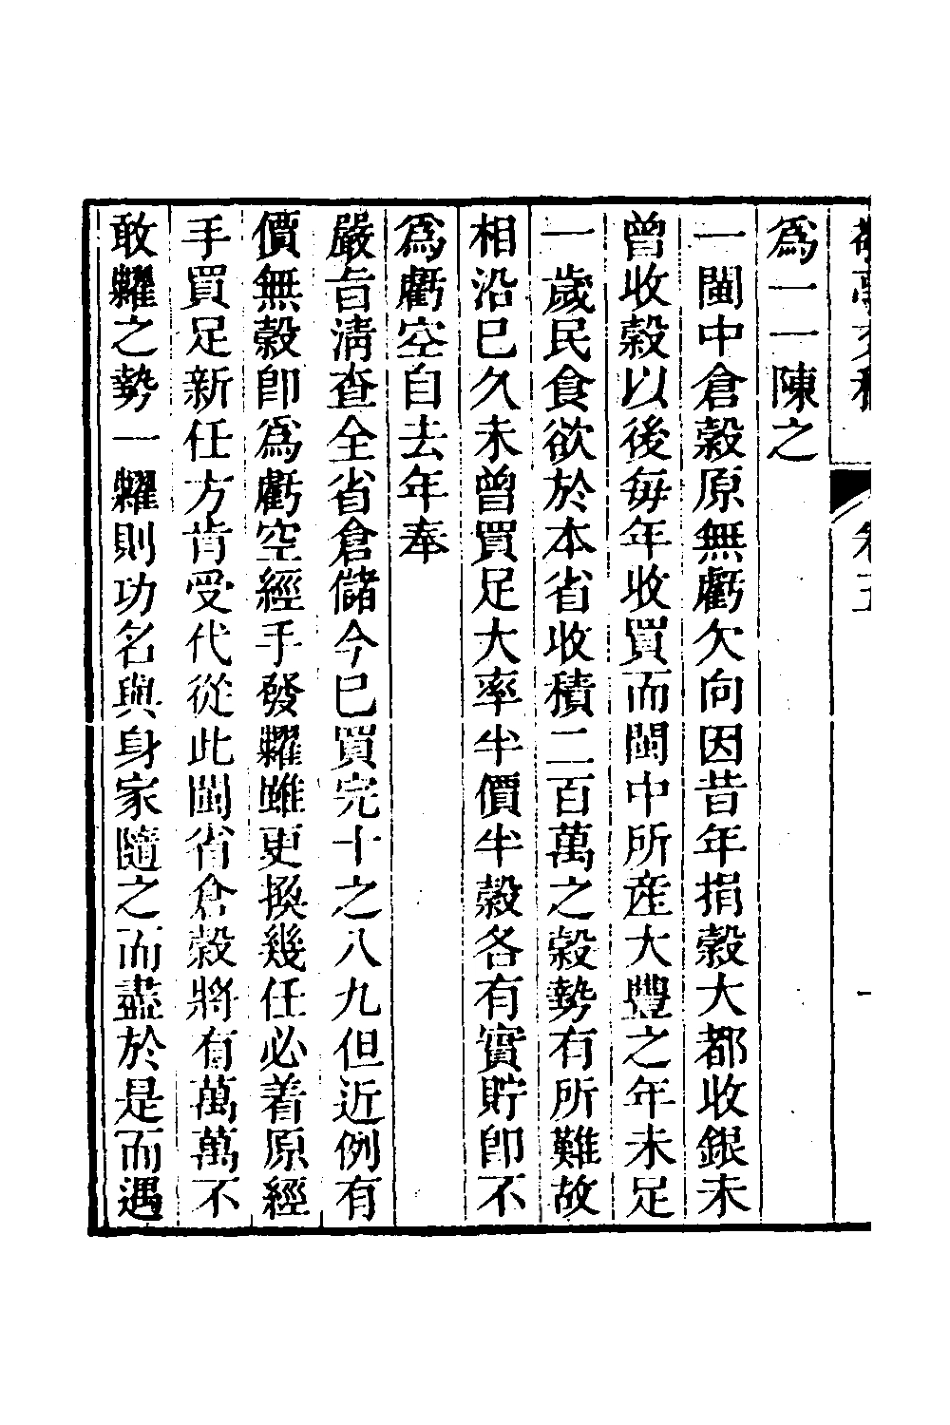 爲一一陳之
一閩中倉穀原無虧欠向因昔年捐穀大都收銀未
曾收穀以後每年收買而閩中所產大豐之年未足
一歲民食欲於本省收積二百萬之穀勢有所難故
相沿已久未曾買足大率半價半穀各有實貯卽不
爲虧空自去年奉
嚴旨淸查全省倉儲今已買完十之八九但近例有
價無穀卽爲虧空經手發糶雖更換幾任必着原經
手買足新任方肯受代從此閩省倉穀將有萬萬不
敢糶之勢一糶則功名與身家隨之而盡於是而遇